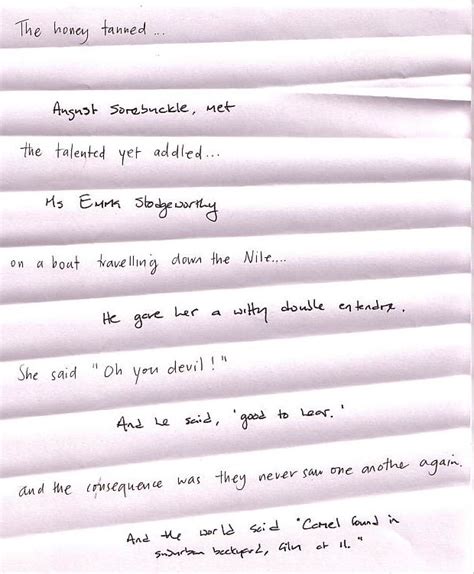 The honey tanned...
August Sorebuckle, met
the talented yet addled...
Ms Emma Slodgeworthy
on a boat travelling down the Nile....
He gave her a witty double entendre.
She said "Oh you devil!"
And he said, 'good to hear.'
and the consequence was they never saw one anothe again.
And the world said "Camel found in
suburban backyard, film at 11."